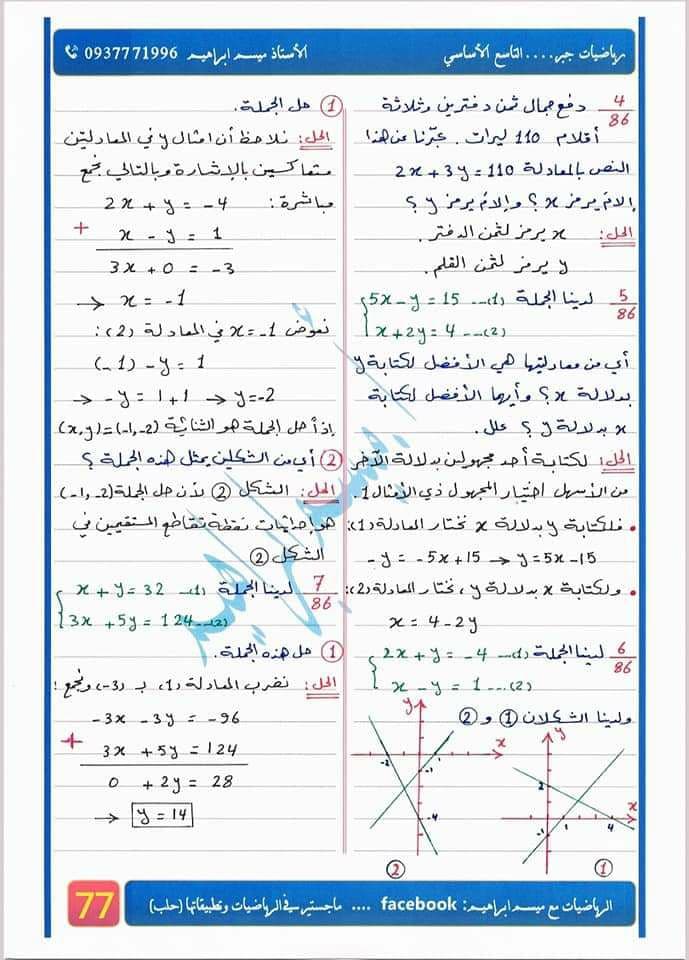 رياضيات جبر.....التاسع الأساسي
الأستاذ ميسم ابراهيم 0937771996
4/86 دفع جمال ثمن دفترين وثلاثة
أقلام 110 ليرات. عبّرنا عن هذا
النص بالمعادلة 2x+3y=110
إلامَ يرمز x؟ وإلامَ يرمز y؟
الحل: x يرمز لثمن الدفتر.
y يرمز لثمن القلم.
5/86 لدينا الجملة 5x-y=15 ...(1)
x+2y=4 ...(2)
أي من معادلتيها هي الأفضل لكتابة y
بدلالة x؟ وأيها الأفضل لكتابة
x بدلالة y؟ علل.
الحل: لكتابة أحد مجهولين بدلالة الآخر
من الأسهل اختيار المجهول ذي الأمثال 1.
• فلكتابة y بدلالة x نختار المعادلة (1):
-y = -5x+15 → y=5x-15
• ولكتابة x بدلالة y، نختار المعادلة (2):
x = 4-2y
6/86 لدينا الجملة 2x+y=-4 ...(1)
x-y=1 ...(2)
ولدينا الشكلان ① و ②
y
x
-2
-1
-4
②
y
x
2
-1
1
4
①
① حل الجملة.
الحل: نلاحظ أن أمثال y في المعادلتين
متعاكسين بالإشارة وبالتالي نجمع
مباشرة: 2x + y = -4
+ x - y = 1
3x + 0 = -3
→ x = -1
نعوض x=-1 في المعادلة (2):
(-1) - y = 1
→ -y = 1+1 → y=-2
إذاً حل الجملة هو الثنائية (x,y)=(-1,-2)
② أي من الشكلين يمثل هذه الجملة؟
الحل: الشكل ② لأن حل الجملة (-1,-2)
هو إحداثيات نقطة تقاطع المستقيمين في
الشكل ②
7/86 لدينا الجملة x+y=32 ...(1)
3x+5y=124 ...(2)
① حل هذه الجملة.
الحل: نضرب المعادلة (1) بـ (-3) ونجمع:
-3x -3y = -96
+ 3x +5y = 124
0 + 2y = 28
→ y = 14
الرياضيات مع ميسم ابراهيم: facebook .... ماجستير في الرياضيات وتطبيقاتها (حلب)
77